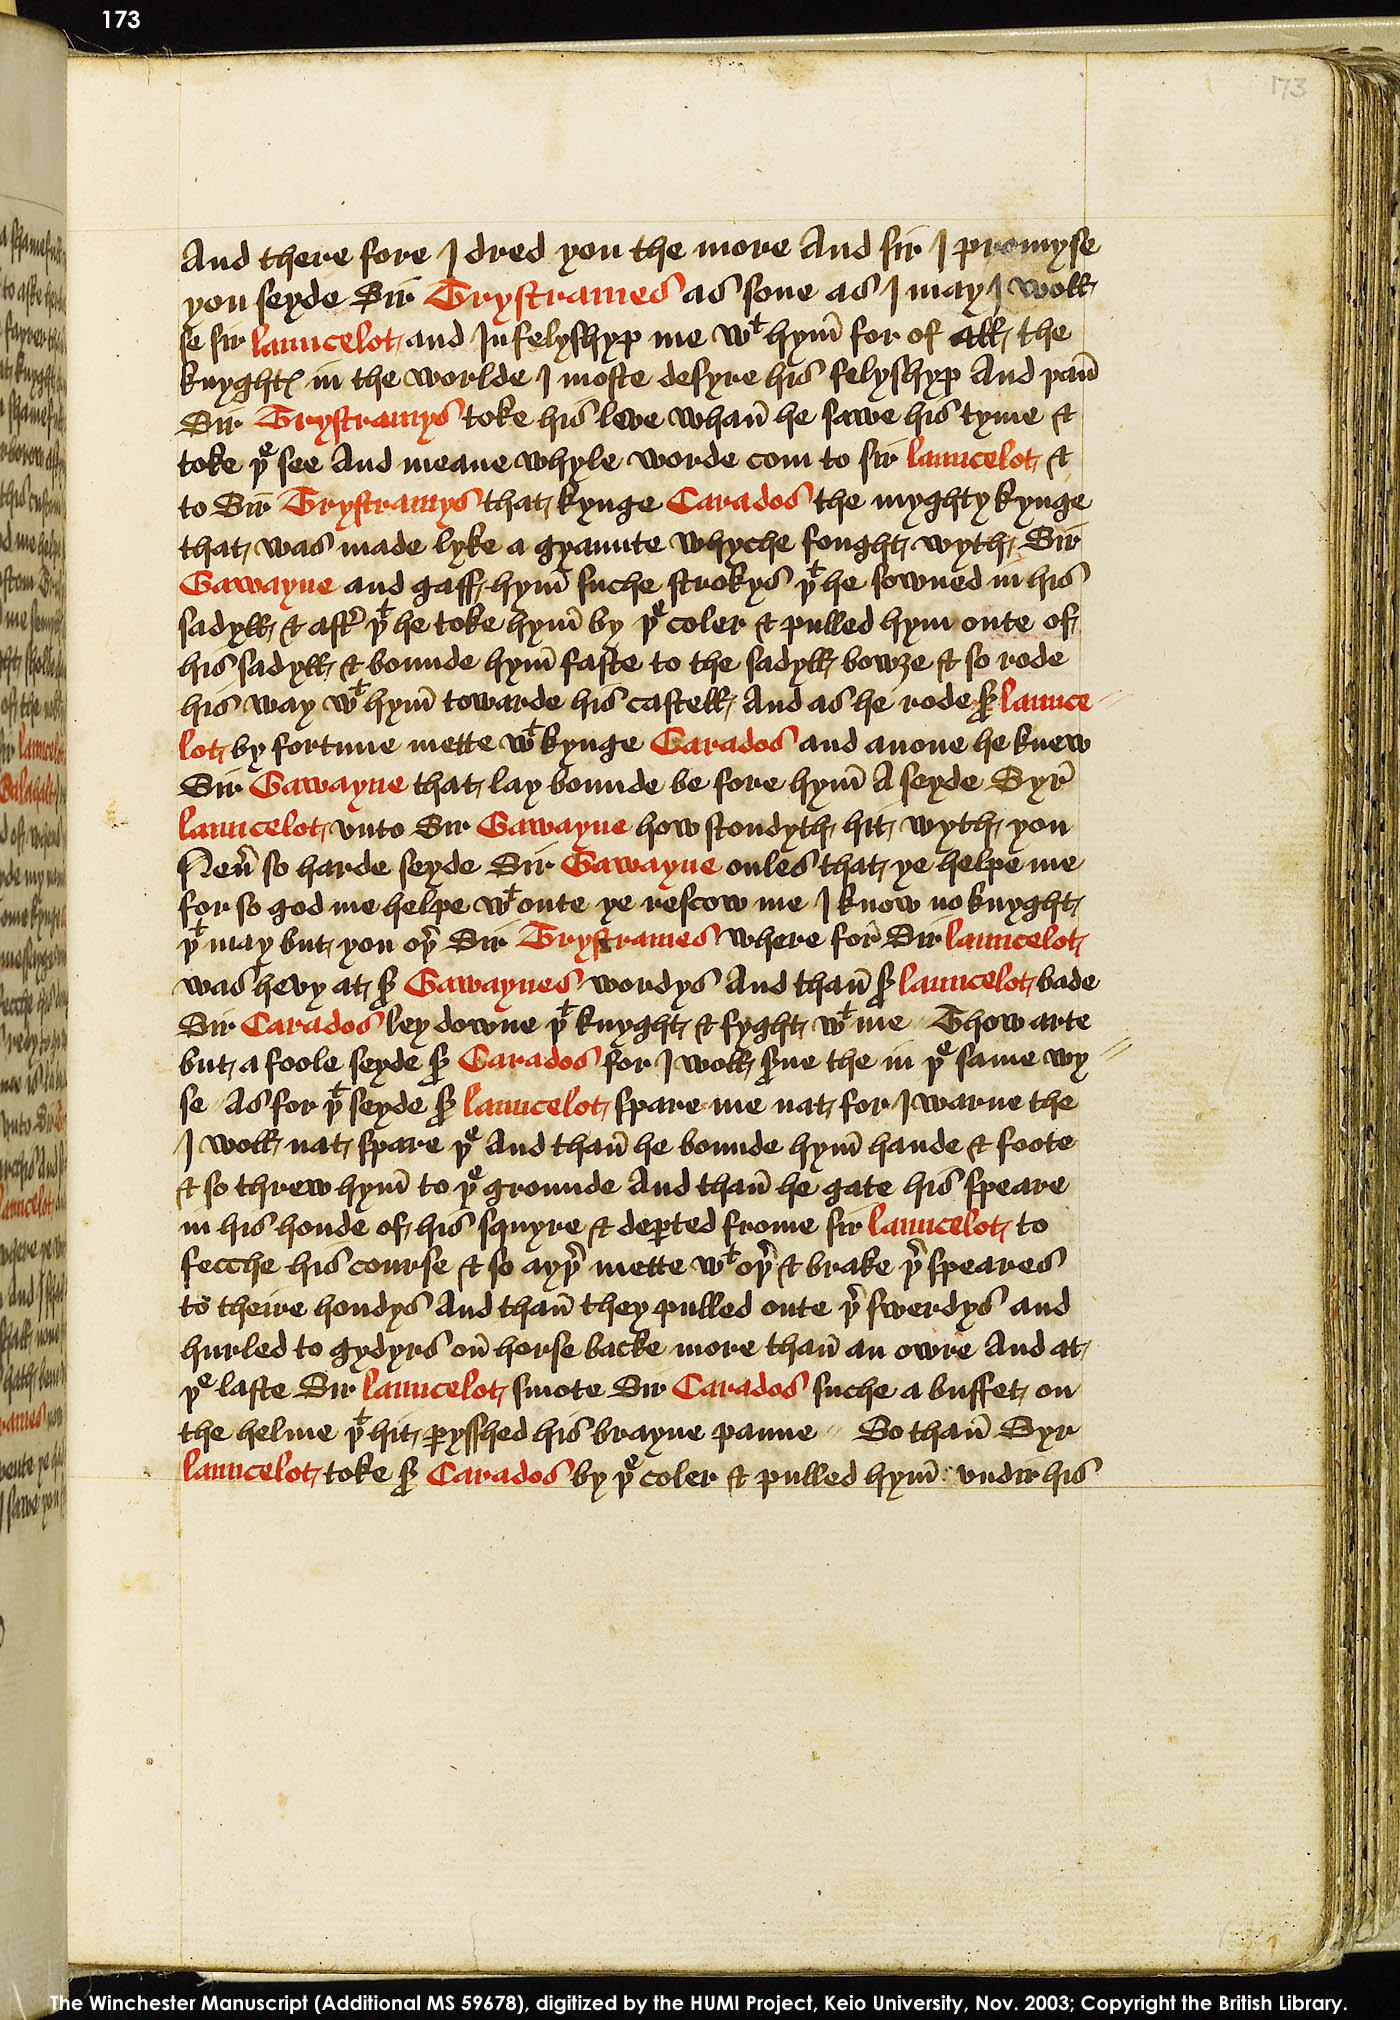 173
173
And there fore I dred you the more And sir I promyse
you seyde Sir Trystrames as sone as I may I woll
se sir launcelot and In felyshyp me wᵗ hym̄ for of all the
knyghtꝭ in the worlde I moste desyre his felyshyp And þan̄
Sir Trystramys toke his leve whan̄ he sawe his tyme &
toke þᵉ see And meane whyle worde com to sir launcelot &
to Sir Trystramys that kynge Carados the myghty kynge
that was made lyke a gyaunte whyche fought wyth Sir
Gawayne and gaff hym̄ suche strokys þᵗ he sowned in his
sadyll & aft͛ þᵗ he toke hym̄ by þᵉ coler & pulled hym oute of
his sadyll & bounde hym̄ faste to the sadyll bowȝe & so rode
his way wᵗ hym̄ towarde his castell And as he rode ẜ launce
lot by fortune mette wᵗ kynge Carados and anone he knew
Sir Gawayne that lay bounde be fore hym̄ A seyde Syr̄
launcelot vnto Sir Gawayne how stondyth hit wyth you
Neu͛ so harde seyde Sir Gawayne onles that ye helpe me
for so god me helpe wᵗ oute ye rescow me I know no knyght
þᵗ may but you oþ͛ Sir Trystrames where for̄ Sir launcelot
was hevy at ẜ Gawaynes wordys And than̄ ẜ launcelot bade
Sir Carados ley downe þᵗ knyght & fyght wᵗ me Thow arte
but a foole seyde ẜ Carados for I woll ẜue the in þᵉ same wy
se As for þᵗ seyde ẜ launcelot spare me nat for I warne the
I woll nat spare þᵉ And than̄ he bounde hym̄ hande & foote
& so threw hym̄ to þᵉ grounde And than̄ he gate his speare
in his honde of his squyre & deꝑted frome sir launcelot to
fecche his course & so ayþ͛ mette wᵗ oþ͛ & brake þ͛ speares
to theire hondys And than̄ they pulled oute þ͛ swerdys and
hurled to gydyrs on̄ horse backe more than̄ an owre And at
þᵉ laste Sir launcelot smote Sir Carados suche a buffet on
the helme þᵗ hit ꝑysshed his brayne panne So than̄ Syr
launcelot toke ẜ Carados by þᵉ coler & pulled hym̄ vndir his
The Winchester Manuscript (Additional MS 59678), digitized by the HUMI Project, Keio University, Nov. 2003; Copyright the British Library.